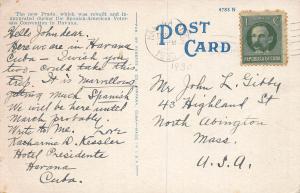 The new Prado, which was rebuilt and in-
augurated during the Spanish-American Veter-
ans Convention in Havana.
4783 N
POST
CARD
1930
REPUBLICA DE CUBA
Hello John dear.
Here we are in Havana
Cuba - I wish you
two could take this
trip. It is marvellous
though much Spanish
We may be here until
March probably.
Write to Me. Love
Katharine R. Kessler
Hotel Presidente
Havana
Cuba.
Mr John L. Gibby
43 Highland St
North Abington
Mass.
U.S.A.